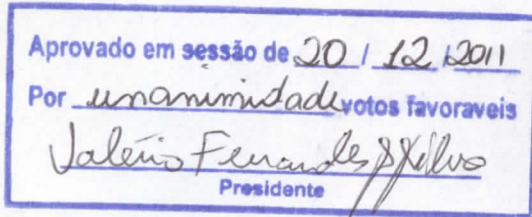 Aprovado em sessão de 20 / 12 / 2011
Por unanimidade votos favoraveis
Valério Fernandes
Presidente